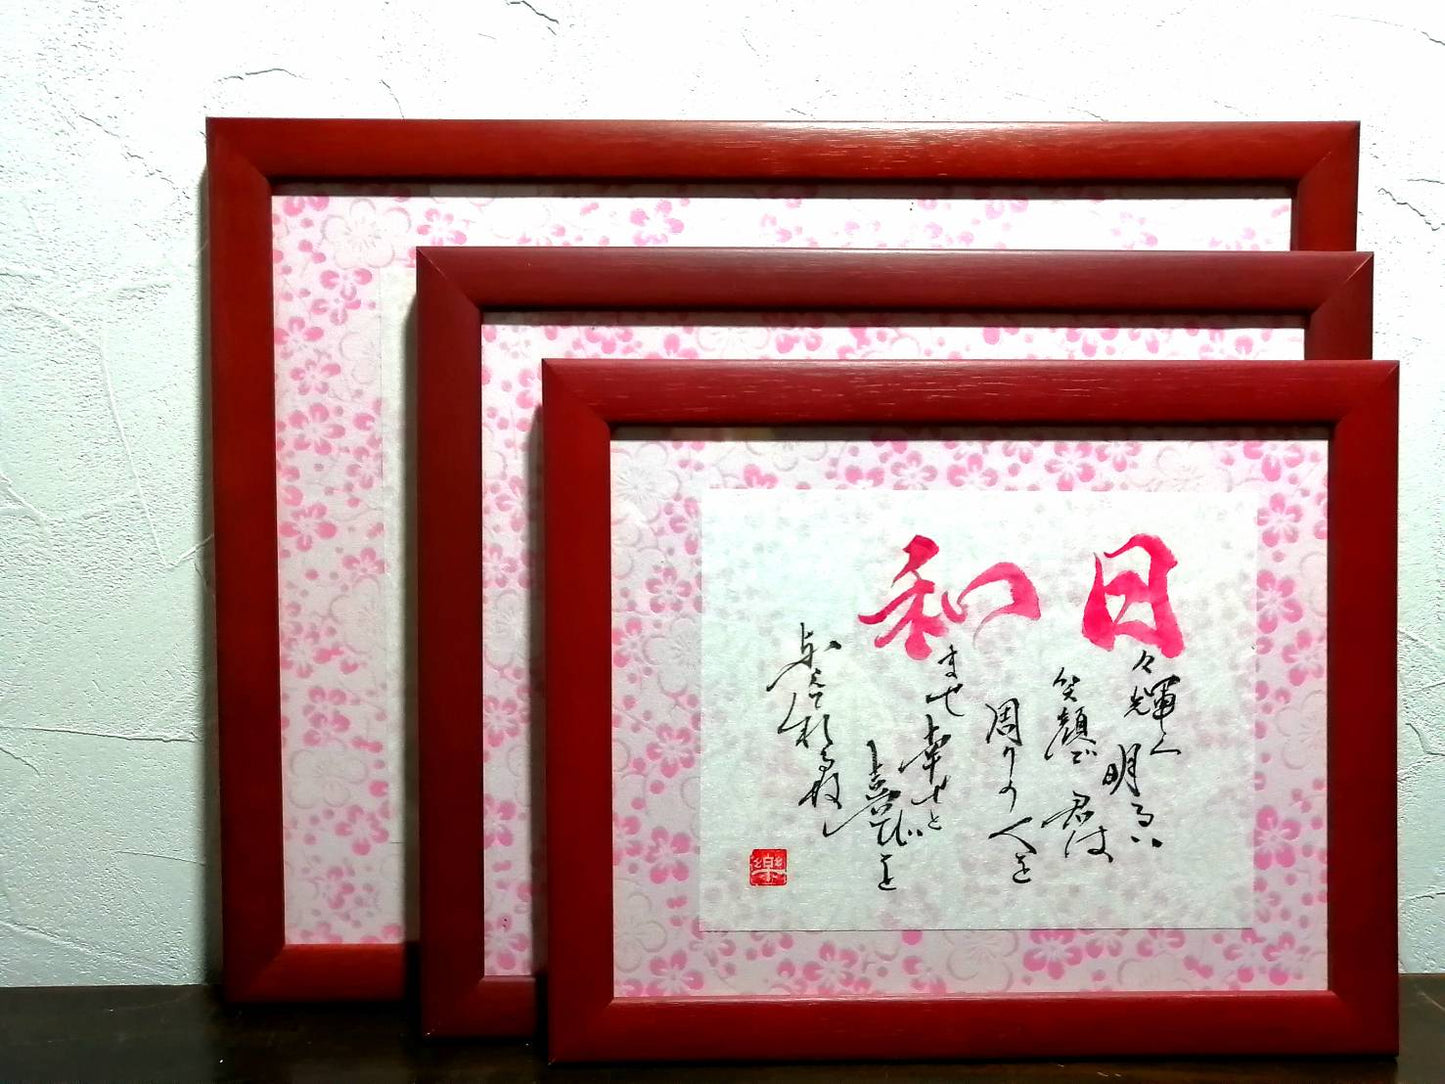 日々輝く
明るい
笑顔で
君は
周りの
人を
和ませ
幸せと
喜びを
与えて
樂